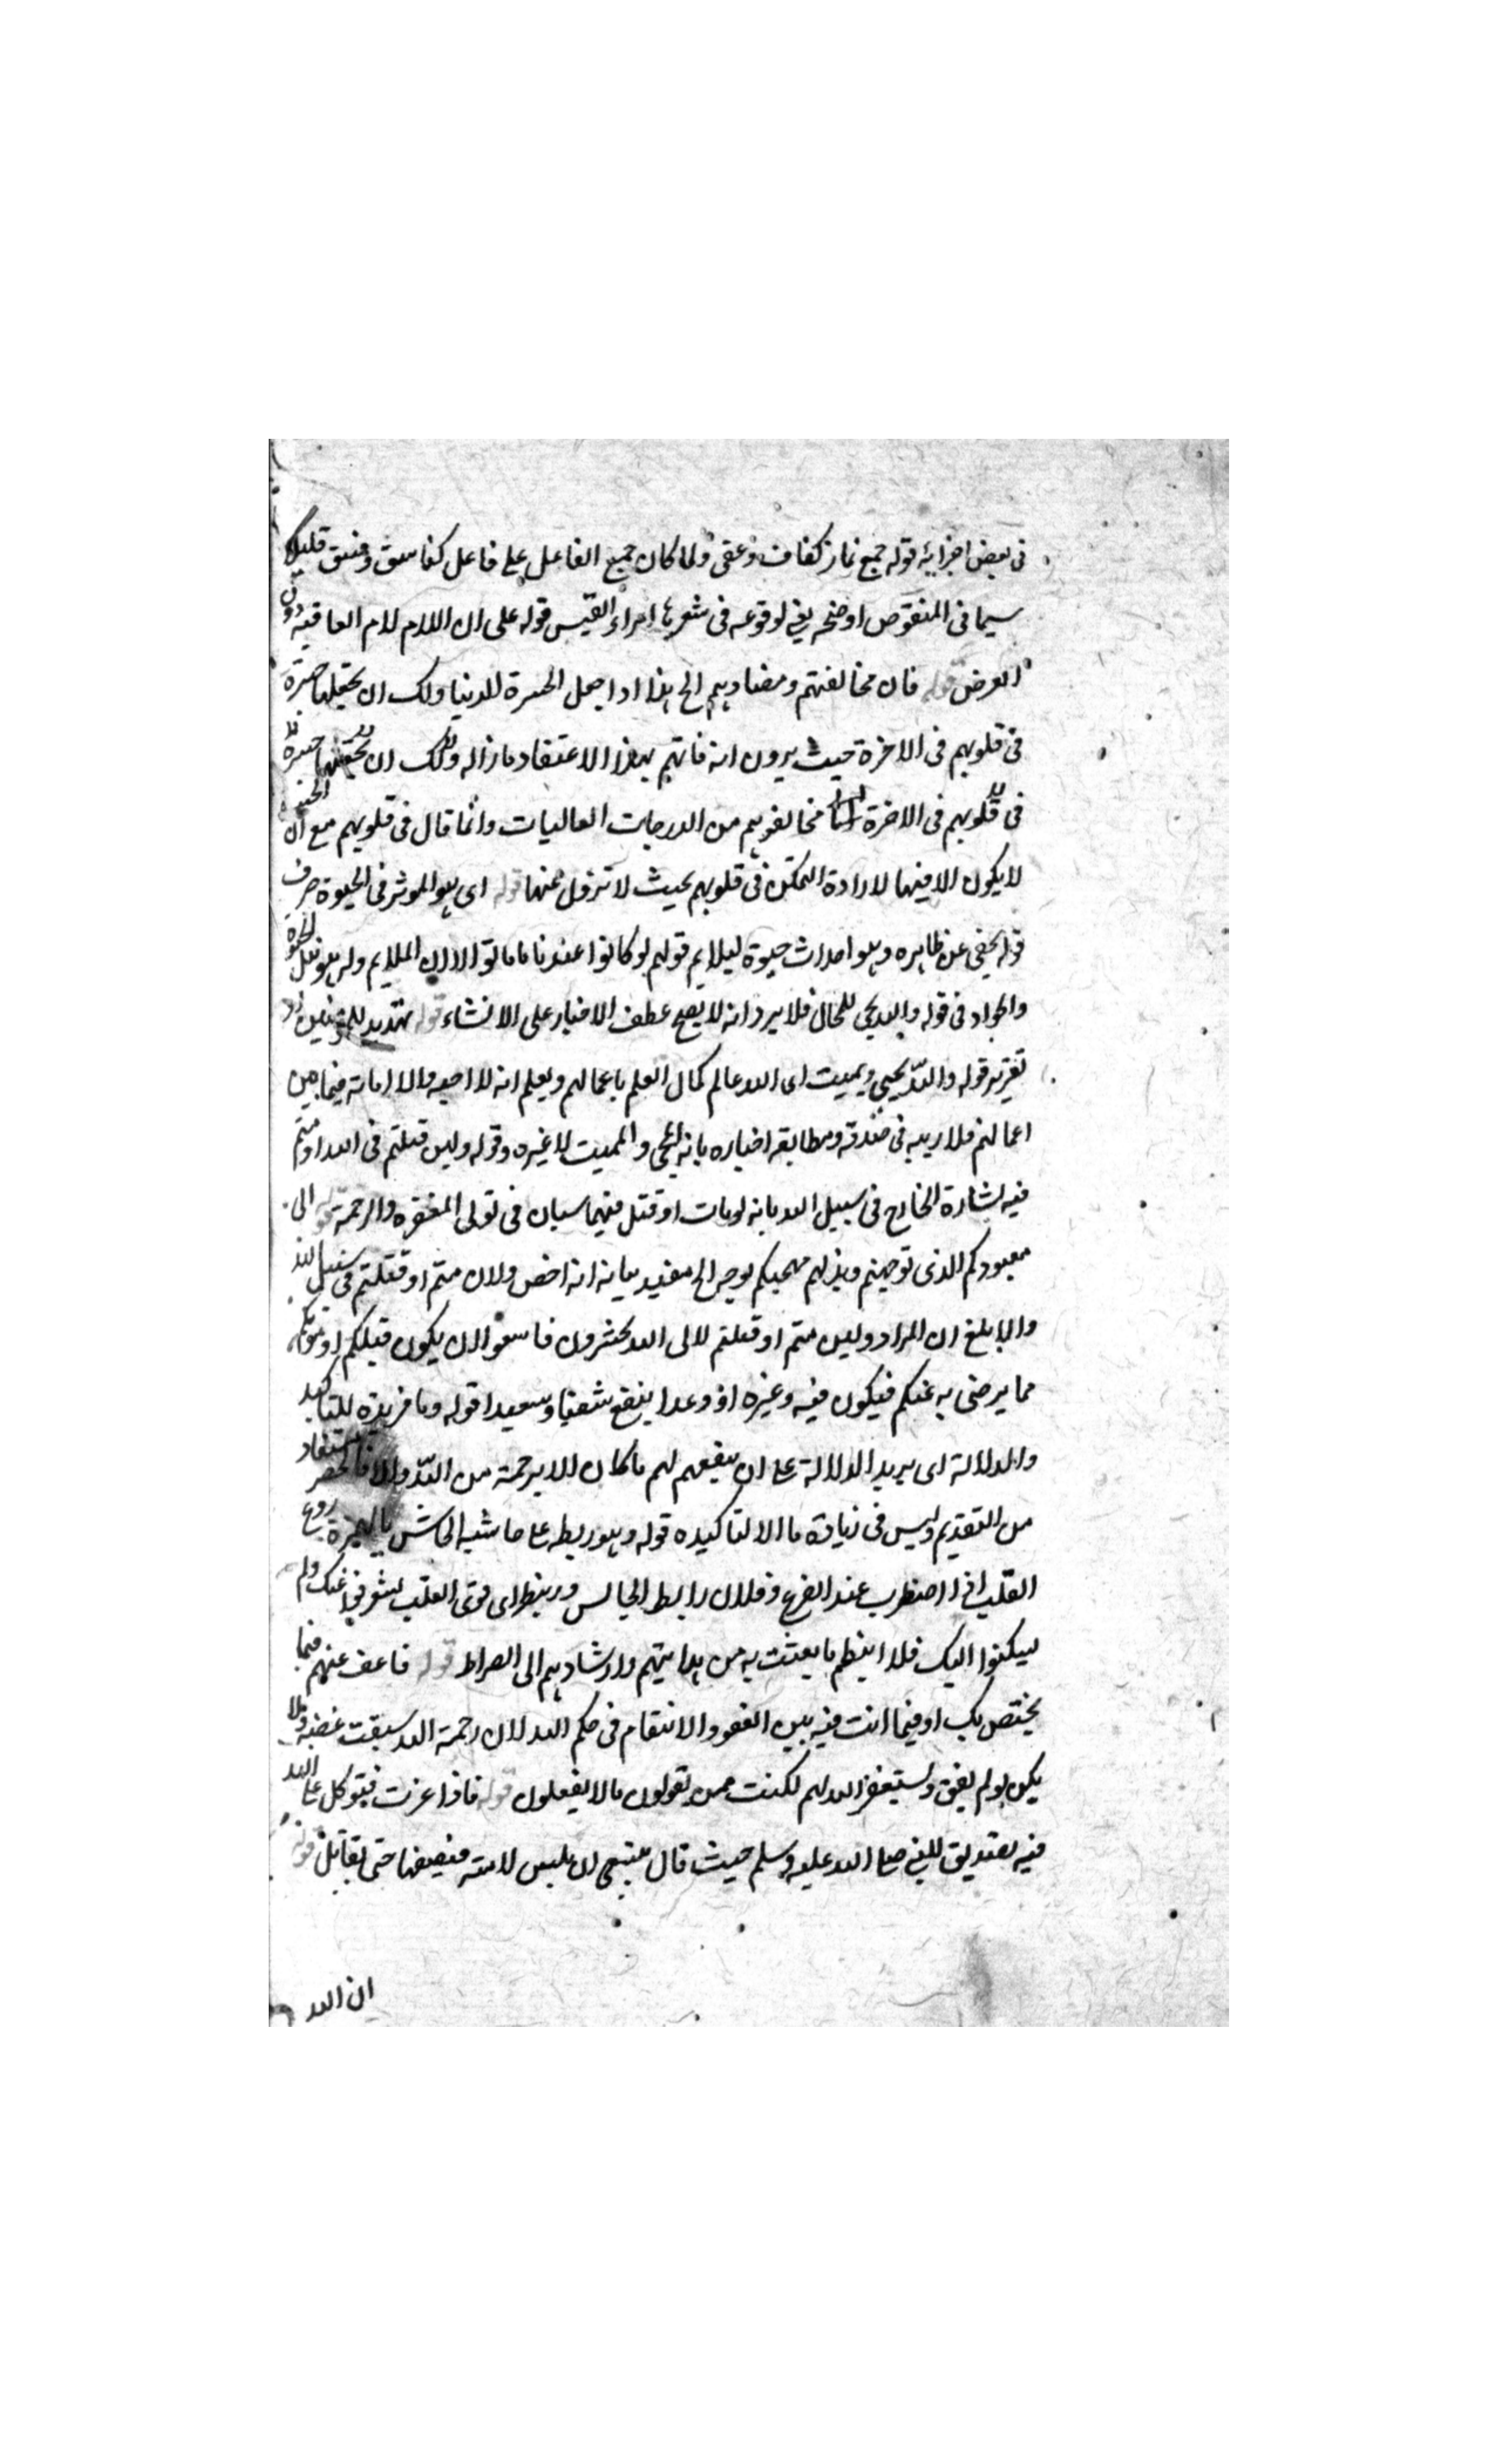 فى بعض اجزائه قوله جمع غاز كعاف وعفى ولما كان جمع الفاعل على فاعل كفاسق وفسق قليلا
سيما فى المنقوص اوضحه لوقوعه فى شعر امراء القيس قوله على ان اللام لام العاقبة دون
الغرض قوله فان مخالفتهم ومضادتهم الخ هذا اذا جعل الحسرة للدنيا ولك ان تجعلها حسرة
فى قلوبهم فى الاخرة حيث يرون انه فاتهم بهذا الاعتقاد ولك ان
فى قلوبهم فى الاخرة مخالفوهم من الدرجات العاليات وانما قال فى قلوبهم مع ان
لا يكون الا فيها لارادة التمكن فى قلوبهم بحيث لا تزول عنها قوله اى هو الموثر فى الحيوة صرف
قوله يحيى عن ظاهره وهو احداث حيوة ليلايم قولهم لو كانوا عندنا ما ماتوا
والمراد فى قوله والله يحيى للحال فلا يرد انه لا يصح عطف الاخبار على الانشاء قوله تهديد للمؤمنين
تقريره قوله والله يحيى ويميت اى الله عالم كمال العلم باعمالهم ويعلم انه لا احياء ولا اماتة فيما بين
اعمالهم فلا ريب فى صدقه ومطابقة اخباره بانه المحيى والمميت لا غيره وقوله ولين قتلتم فى الله او متم
فيه بشارة الخارج فى سبيل الله بانه لو مات او قتل فهما سيان فى تولى المغفرة والرحمة قوله الى
معبودكم الذى توجهتم وبذلهم مهجكم لوجهه الخ ولان متم او قتلتم فى سبيل الله
والابلغ ان المراد ولين متم او قتلتم لالى الله تحشرون فاسعوا ان يكون قتلكم او موتكم
مما يرضى به عنكم فيكون فيه وغيره قوله وما مزيدة للتاكيد
والدلالة اى يريد الدلالة على ان لهم ما كان الا برحمة من الله والا فالحصر مستفاد
من التقديم وليس فى زيادة ما الا لتاكيده قوله وهو ربطه على جاشه الجاش بالهمزة روع
القلب اذا اضطرب عند الفزع وفلان رابط الجاش وربيط اى قوى القلب لتفرقوا عنك ولم
يسكنوا اليك فلا ينظم ما بعثت به من هدايتهم وارشادهم الى الصراط قوله فاعف عنهم فيما
يختص بك او فيما انت فيه بين العفو والانتقام فى حكم الله لان رحمة الله سبقت غضبه ولا
لو لم يعف ويستغفر الله لهم لكنت ممن يقولون ما لا يفعلون قوله فاذا عزمت فتوكل على الله
فيه تصديق للنبى صلى الله عليه وسلم حيث قال لنبى ان يلبس لامته فيضعها حتى يقاتل قوله
ان الله